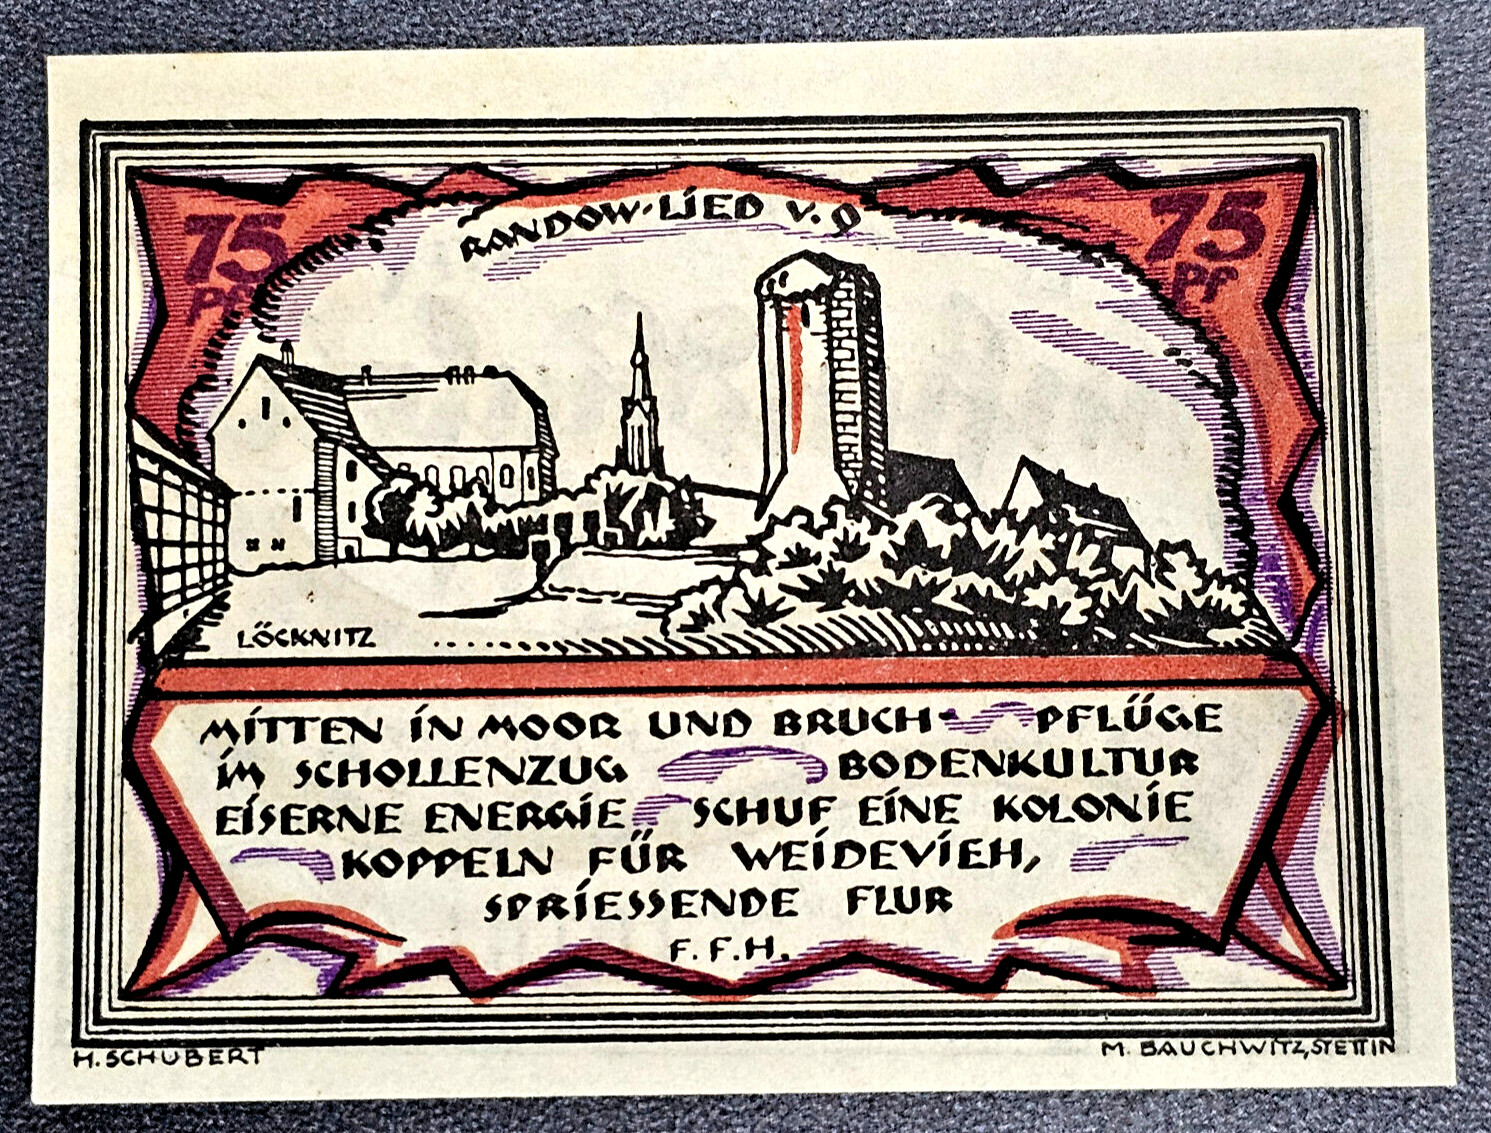 RANDOW-LIED V. 9
75
Pf
75
Pf
LÖCKNITZ
MITTEN IN MOOR UND BRUCH- PFLÜGE
IM SCHOLLENZUG BODENKULTUR
EISERNE ENERGIE SCHUF EINE KOLONIE
KOPPELN FÜR WEIDEVIEH,
SPRIESSENDE FLUR
F. F. H.
H. SCHUBERT
M. BAUCHWITZ, STETTIN